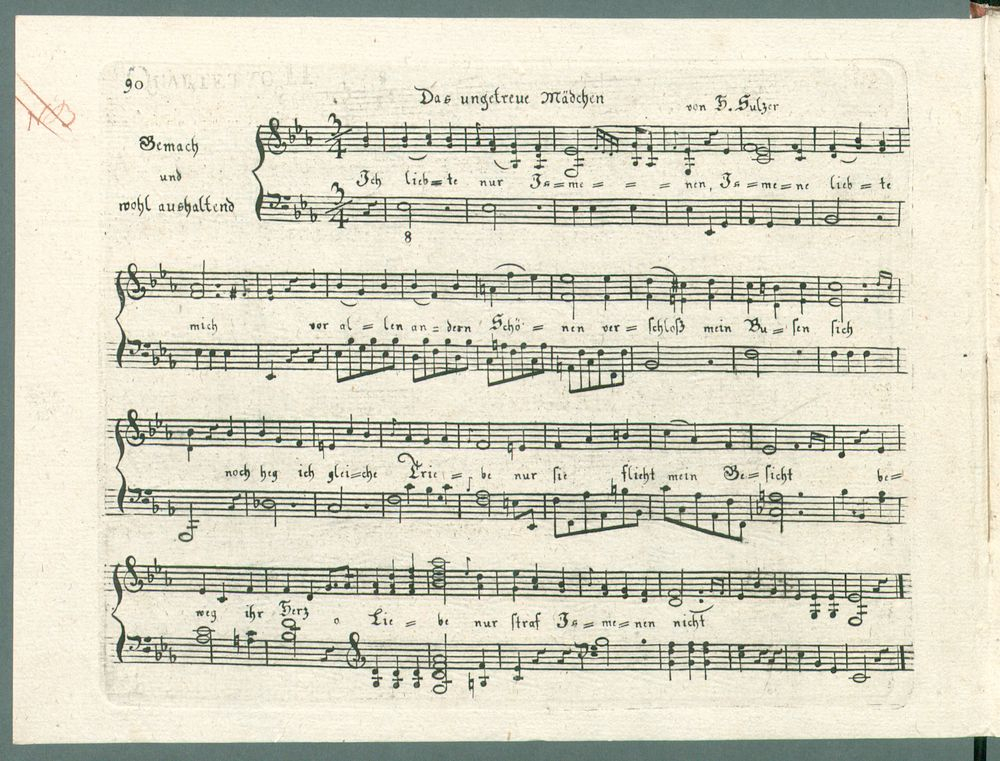 90
Das ungetreue Mädchen
von H. Sulzer
Gemach
und
wohl aushaltend
3/4
Ich lieb=te nur Is=me = = = nen, Is=me=ne lieb=te
3/4
8
mich vor al=len an=dern Schö = nen ver=schloß mein Bu=sen sich
noch heg ich glei=che Trie = be nur sie flieht mein Ge=sicht be=
weg ihr Herz o Lie = be nur straf Is=me=nen nicht